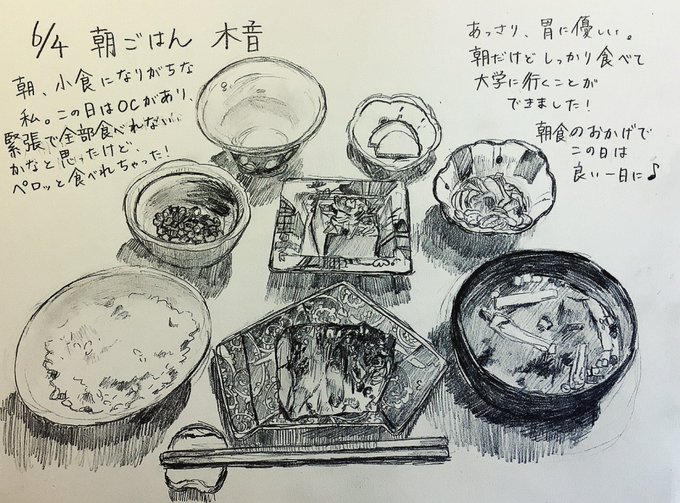 6/4 朝ごはん 木音
朝、小食になりがちな
私。この日はOCがあり、
緊張で全部食べれない
かなと思ったけど、
ペロッと食べれちゃった!
あっさり、胃に優しい。
朝だけどしっかり食べて
大学に行くことが
できました!
朝食のおかげで
この日は
良い一日に♪